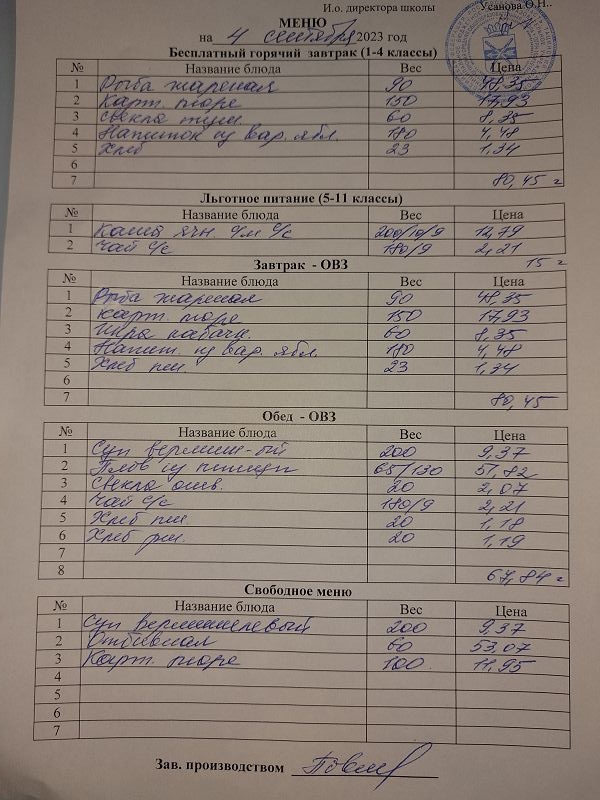 И.о. директора школы Усанова О.Н..
МЕНЮ
на 4 сентября 2023 год
Бесплатный горячий завтрак (1-4 классы)
№ Название блюда Вес Цена
1 Рыба жареная 90 48,35
2 Карт. пюре 150 17,93
3 Свекла туш. 60 8,35
4 Напиток из вар. ябл. 180 4,48
5 Хлеб 23 1,34
6
7 80,45
Льготное питание (5-11 классы)
№ Название блюда Вес Цена
1 Каша ячн. с/м с/с 200/10/9 12,79
2 Чай с/с 180/9 2,21
15
Завтрак - ОВЗ
№ Название блюда Вес Цена
1 Рыба жареная 90 48,35
2 Карт. пюре 150 17,93
3 Икра кабачк. 60 8,35
4 Напит. из вар. ябл. 180 4,48
5 Хлеб пш. 23 1,34
6
7 80,45
Обед - ОВЗ
№ Название блюда Вес Цена
1 Суп вермиш-ый 200 9,37
2 Плов из птицы 65/130 51,82
3 Свекла отв. 20 2,07
4 Чай с/с 180/9 2,21
5 Хлеб пш. 20 1,18
6 Хлеб рж. 20 1,19
7
8 67,84
Свободное меню
№ Название блюда Вес Цена
1 Суп вермишелевый 200 9,37
2 Отбивная 60 53,07
3 Карт. пюре 100 11,95
4
5
6
7
Зав. производством